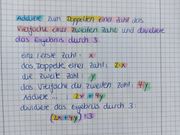 Addiere zum Doppelten einer Zahl das
Vierfache einer zweiten Zahl und dividiere
das Ergebnis durch 3.
eine erste Zahl: x
das Doppelte einer Zahl: 2·x
die zweite Zahl: y
das Vierfache der zweiten Zahl: 4y
Addiere ... : 2x + 4y
dividiere das Ergebnis durch 3:
(2x + 4y) : 3